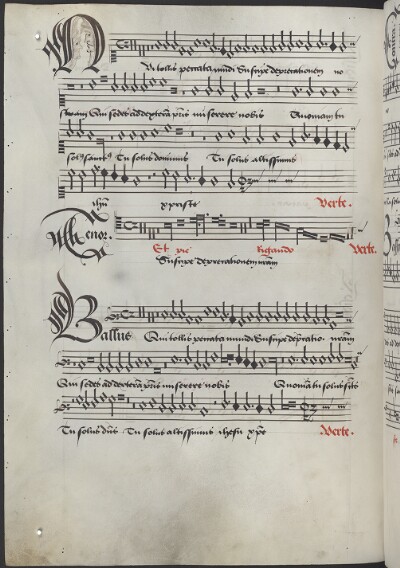 Qui tollis peccata mundi Suscipe deprecationem no
stram Qui sedes ad dexteram pris miserere nobis Quoniam tu
solus sanctus Tu solus dominus Tu solus altissimus
ihu xpriste Verte.
Tenor. Et pic Rigando Verte.
Suscipe deprecationem nram
Bassus Qui tollis peccata mundi Suscipe depcatio. nram
Qui sedes ad dextera pris miserere nobis Quoniam tu solus scts
Tu solus dns Tu solus altissimus ihesu xpe Verte.
Contra